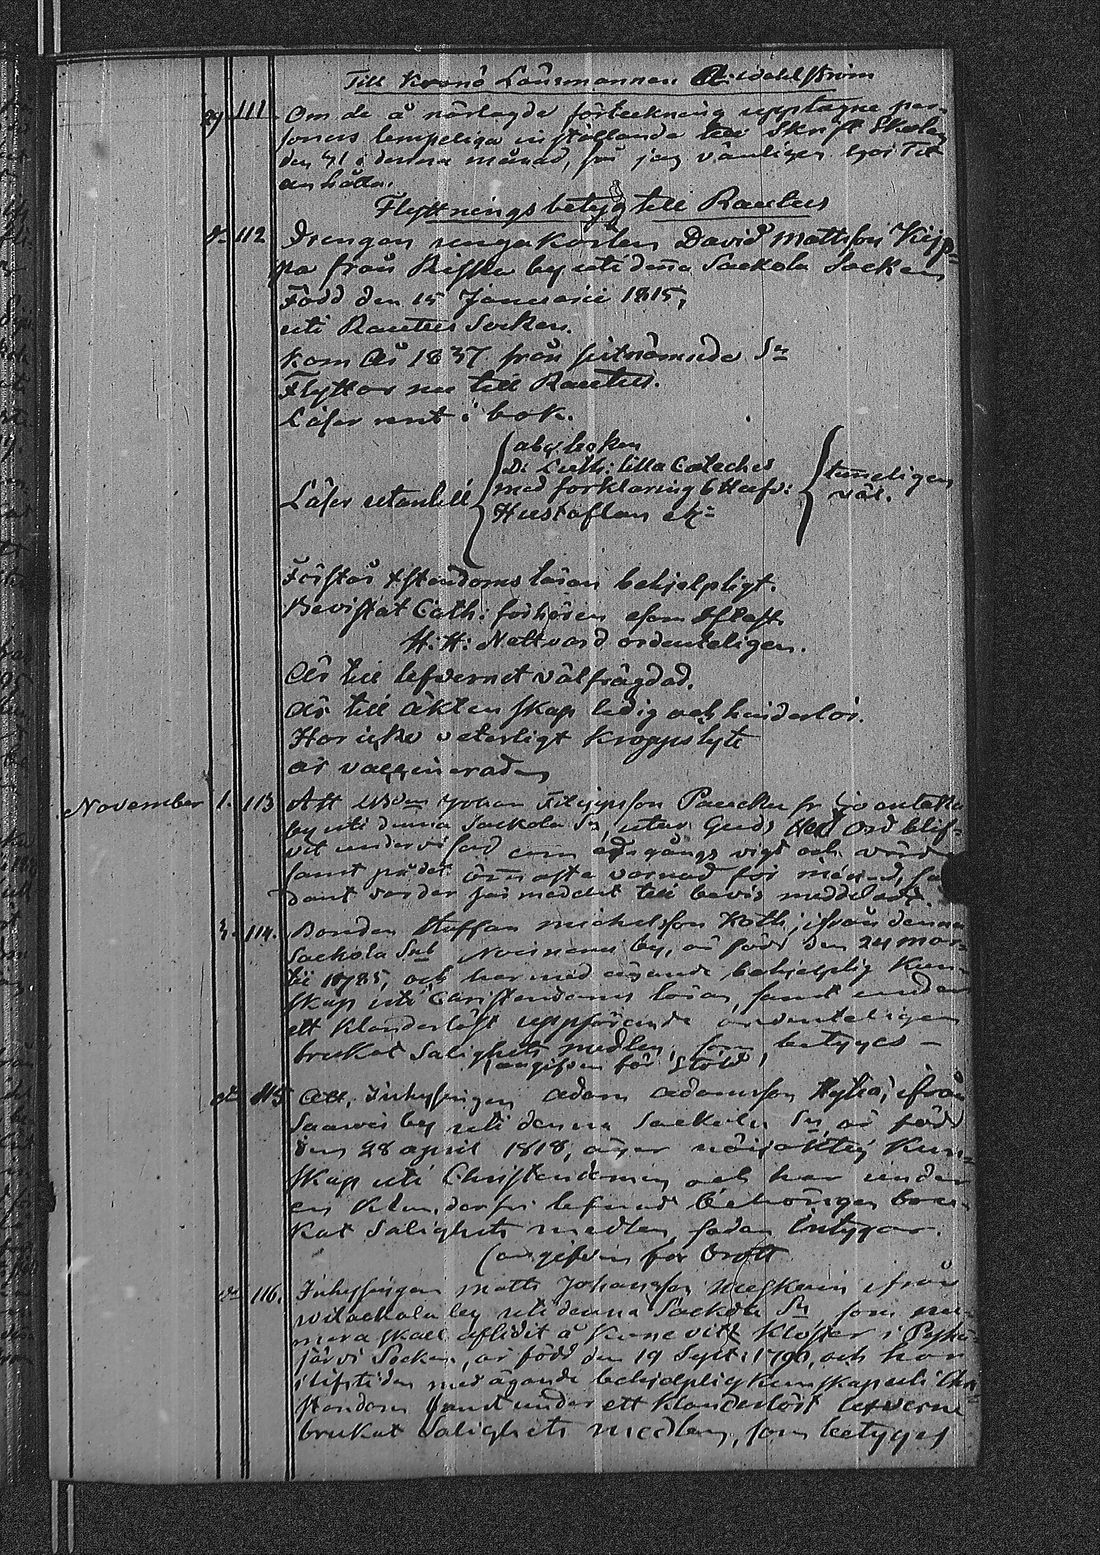 Till Krono Länsmannen A: Wahlström
29 111. Om de å närlagde förteckning upptagne per-
soners lempeliga inställande till Skrift Skolan
den 31 i denna månad, får jag vänligen hos Tit
anhålla.
Flyttningsbetyg till Rautus
d. 112 Drengen ungakarlen David Mattsson Kip-
pa från Riska by uti denna Sackola Socken
Född den 15 Januarii 1815,
uti Rautus Socken.
kom År 1837 från sistnämnde Sn
Flyttar nu till Rautus.
Läser rent i bok.
Läser utantill
abc boken
D: Luth: lilla Cateches
med förklaring 6 Hufv:
Hustaflan etc
tämeligen
väl.
Förstår Xstendoms läran behjelpligt.
Bevistat Cath: förhören
H: H: Nattvard ordenteligen.
Är till lefvernet välfrägdad.
Är till äktenskap ledig och hinderlös.
Har icke veterligt kroppslyte
är vaccinerad
November 1. 113 Att Johan Filippsson Paucku fr
by uti denna Sackola Sn, utur Guds Ord blif-
vit undervisad om edgångs vigt och värde
samt på det varnad för mened, så-
dant varder härmedelst till bevis meddeladt.
3. 114. Bonden Staffan Michelsson Koth, ifrån denna
Sackola Sn Noisniemi by, är född den 24 Mar-
tii 1785, och har med ägande behjelplig kun-
skap uti Christendoms läran, samt under
ett klanderlöst uppförande ordenteligen
brukat Salighets medlen, som betyges –
angifven för Stöld
dn 115 Att, Inhysingen Adam Adamsson Hyliä, ifrån
by uti denna Sackola Sn, är född
den 28 april 1818, äger nöjaktig kun-
skap uti Christendomen och har under
en klanderfri lefnad behörigen bru-
kat Salighets medlen sedan intygar.
(angifven för Brott
dn 116. Inhysingen Matts Johansson ifrån
by uti denna Sackola Sn som nu-
mera skall aflidit å kloster i Pyhä-
järvi Socken, är född den 19 Sept: 1790, och har
i lifstiden med ägande behjelplig kunskap uti Chri-
stendom samt under ett klanderlöst lefverne
brukat Salighets medlen, som betyges